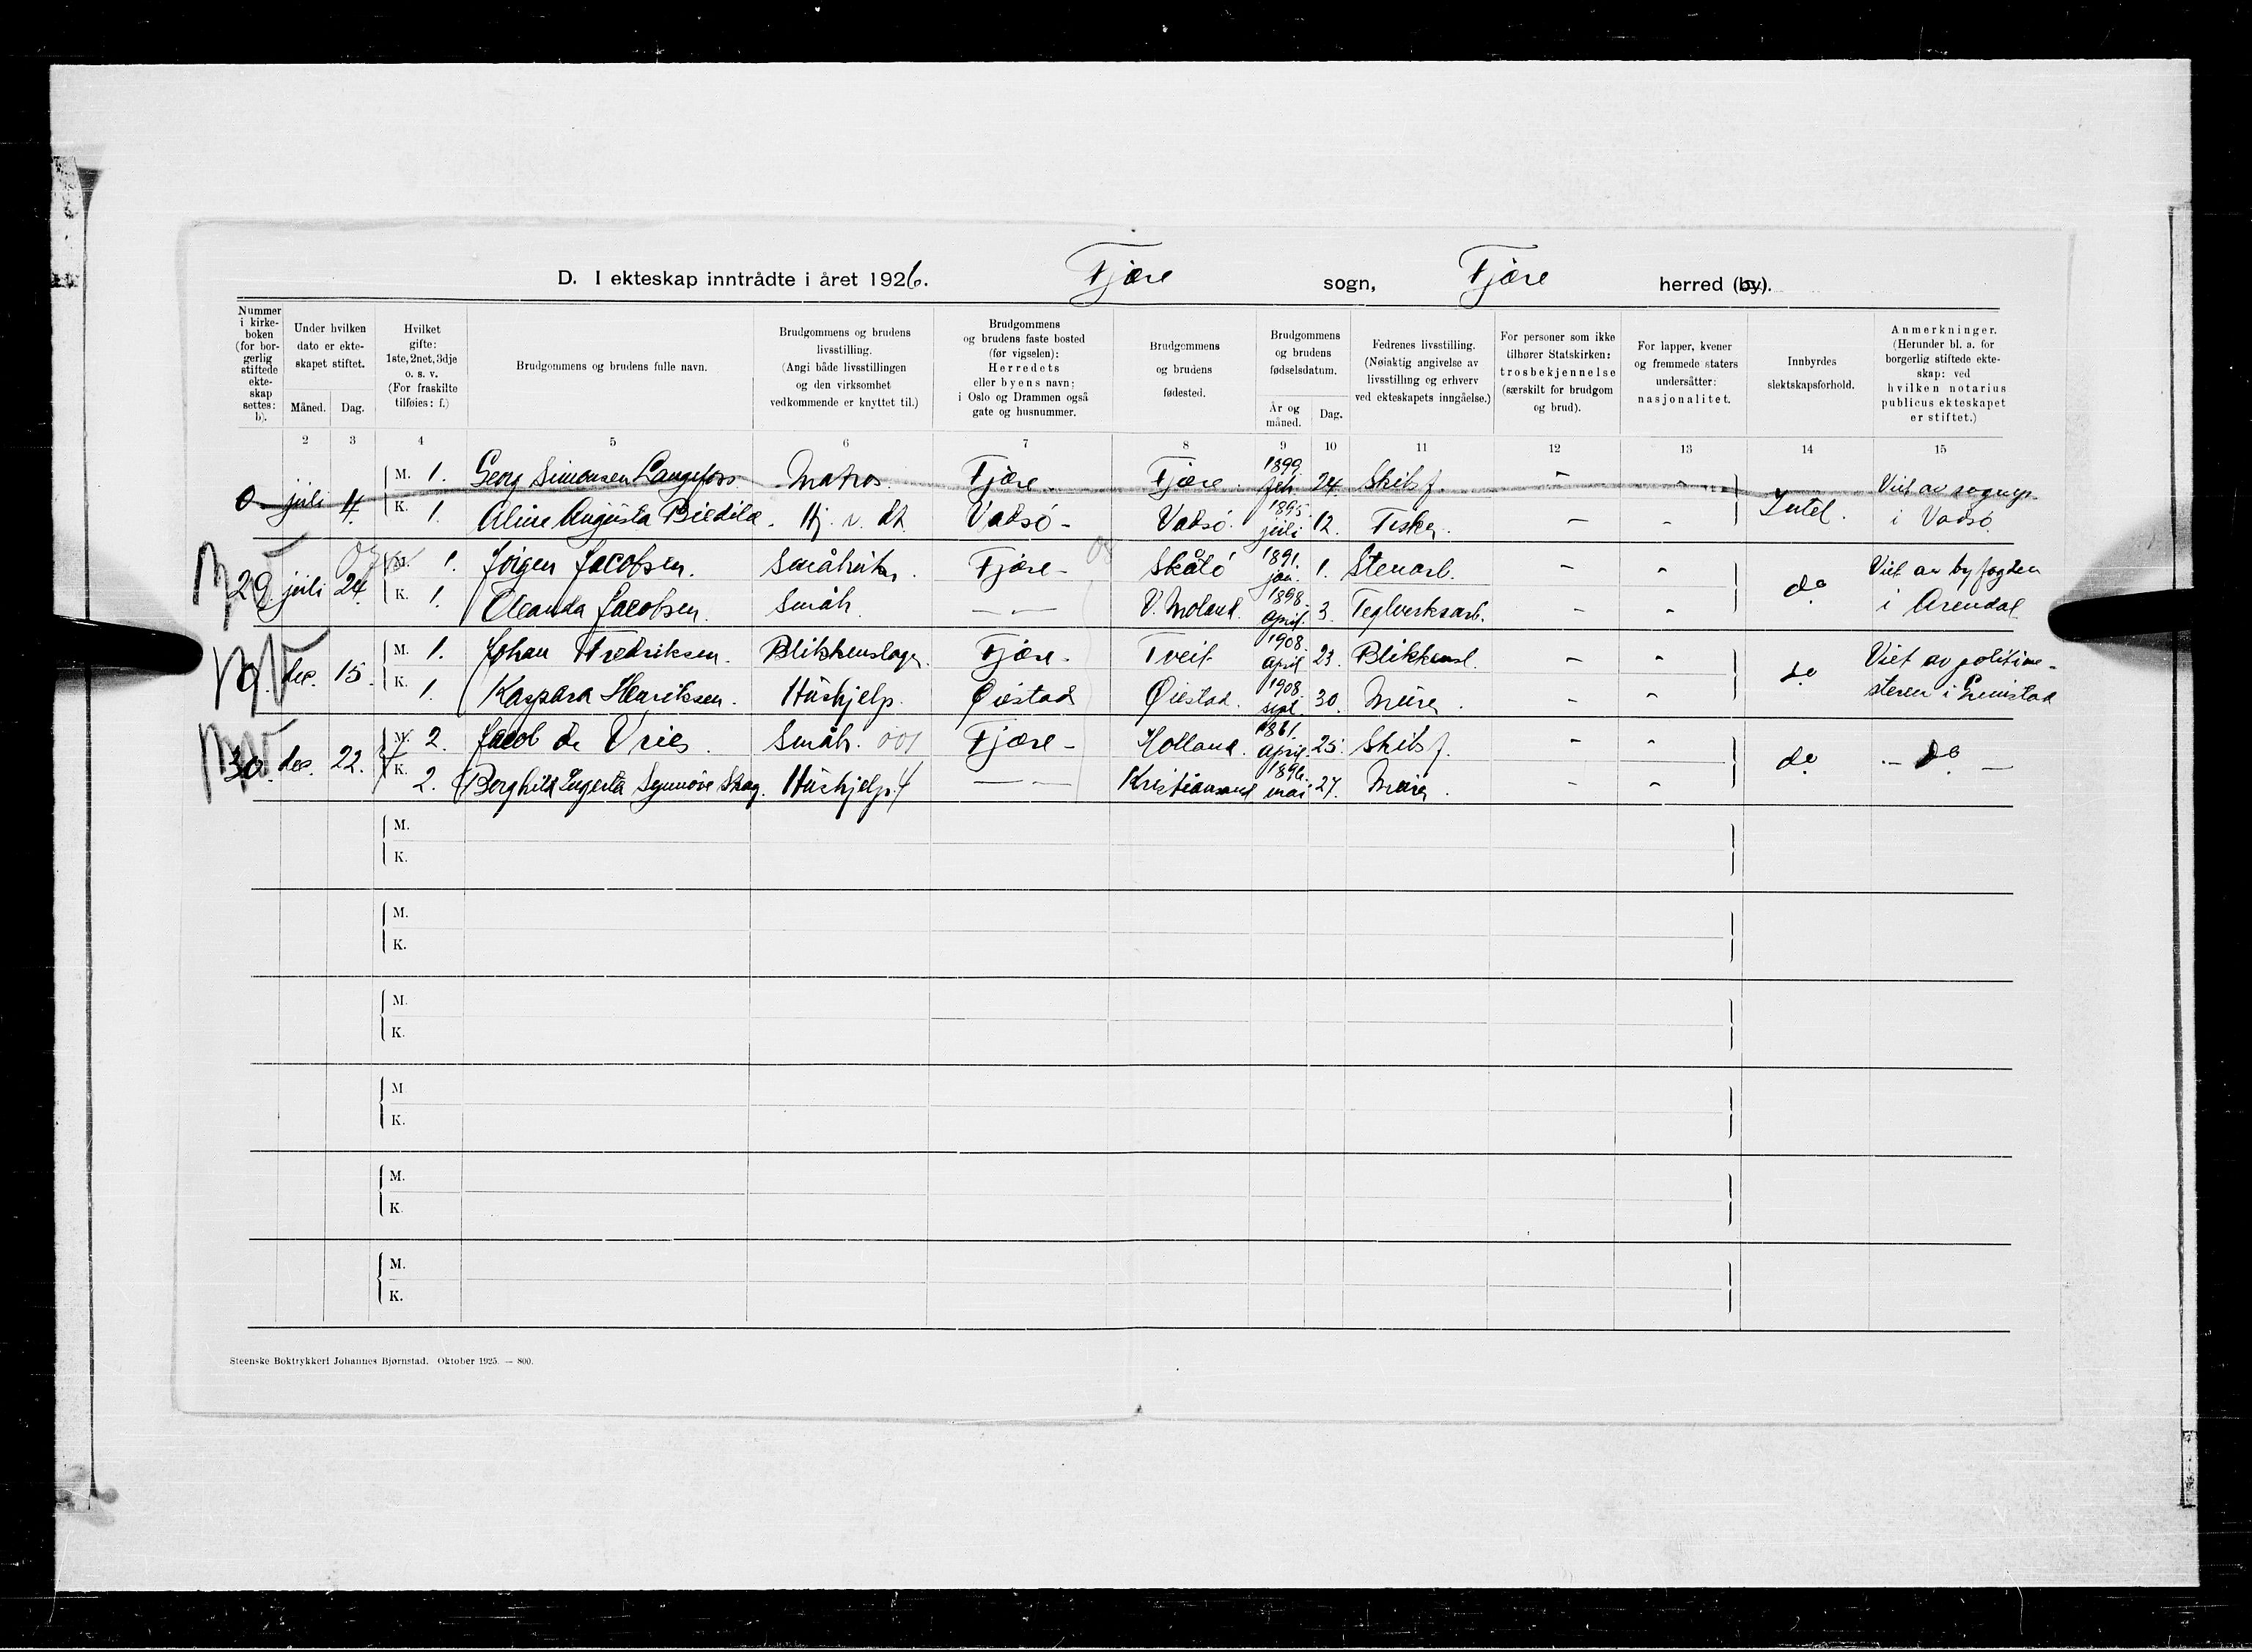 D. I ekteskap inntrådte i året 1926. Fjære sogn, Fjære herred (by).
Nummer i kirke-boken (for bor-gerlig stiftede ekte-skap settes: b).
Under hvilken dato er ekte-skapet stiftet.
Måned. Dag.
Hvilket gifte: 1ste, 2net, 3dje o. s. v. (For fraskilte tilføies: f.)
Brudgommens og brudens fulle navn.
Brudgommens og brudens livsstilling. (Angi både livsstillingen og den virksomhet vedkommende er knyttet til.)
Brudgommens og brudens faste bosted (før vigselen): Herredets eller byens navn; i Oslo og Drammen også gate og husnummer.
Brudgommens og brudens fødested.
Brudgommens og brudens fødselsdatum.
År og måned. Dag.
Fedrenes livsstilling. (Nøiaktig angivelse av livsstilling og erhverv ved ekteskapets inngåelse.)
For personer som ikke tilhører Statskirken: trosbekjennelse (særskilt for brudgom og brud).
For lapper, kvener og fremmede staters undersåtter: nasjonalitet.
Innbyrdes slektskapsforhold.
Anmerkninger. (Herunder bl. a. for borgerlig stiftede ekte-skap: ved hvilken notarius publicus ekteskapet er stiftet.)
2 3 4 5 6 7 8 9 10 11 12 13 14 15
0 juli 4. M. 1. Georg Simonsen Langefoss Matros. Fjære Fjære. 1899. feb. 24. Skibsf. - - Intet. Viet av sognepr.
K. 1. Aline Augusta Biedilæ. Hj. v. Vadsö - Vadsö. 1895. juli 12. Fisker. - - i Vadsö
29. juli 24. M. 1. Jörgen Jacobsen. Småbruker. Fjære - Skåtö 1891. jan. 1. Stenarb. - - do Viet av byfogden
K. 1. Oleanda Jacobsen. Småb. — — V. Moland. 1898. april. 3. Teglverksarb. - - i Arendal
des. 15. M. 1. Johan Fredriksen. Blikkenslager. Fjære. Tveit 1908. april 23. Blikkensl. - - do Viet av politime-
K. 1. Kaspara Henriksen. Hushjelp. Øiestad Øiestad. 1908. sept. 30. Murer. - - steren i Grimstad
30. des. 22. M. 2. Jacob de Vries. Småb. 001 Fjære - Holland. 1861. april. 25. Skibsf. - - do - do -
K. 2. Borghild Ingerta Synnöve Skag. Hushjelp. 4 — — Kristiansand 1896. mai 27. Murer. - -
M.
K.
M.
K.
M.
K.
M
K.
M.
K.
M.
K.
Steenske Boktrykkeri Johannes Bjørnstad. Oktober 1925. — 800.